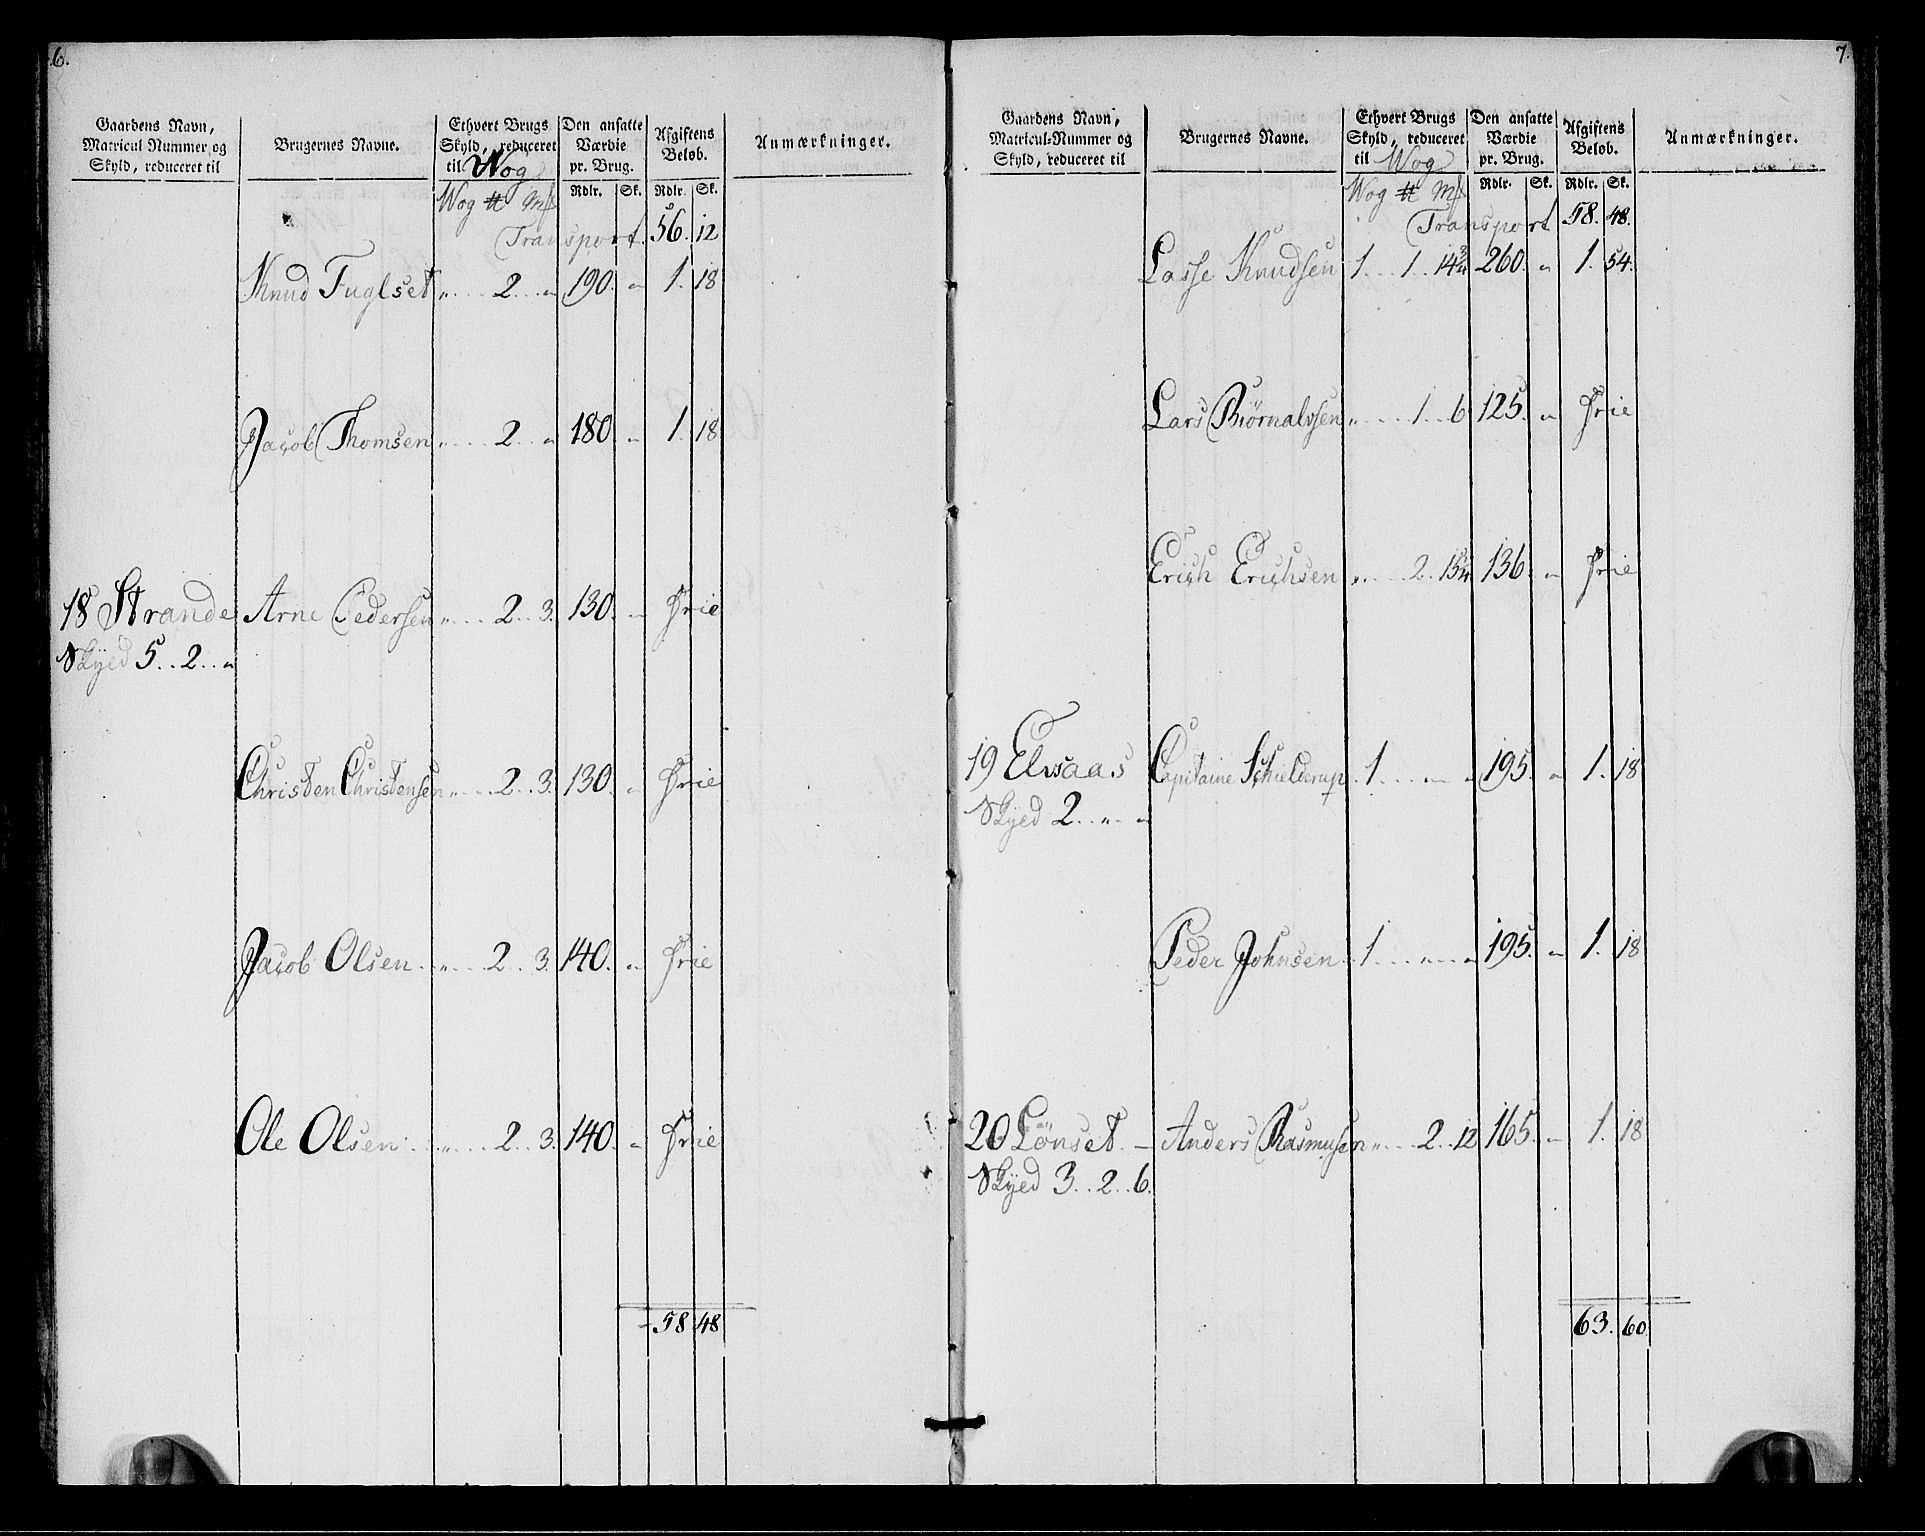 6.
Gaardens Navn, Matricul Nummer og Skyld, reduceret til
Brugernes Navne.
Ethvert Brugs Skyld, reduceret til Wog
Den ansatte Værdie pr. Brug.
Afgiftens Beløb.
Anmærkninger.
Wog ℔ Mk Rdlr. Sk. Rdlr. Sk.
Transport. 56. 12
Knud Fuglset „ 2 „ 190. „ 1. 18
Jacob Thomsen „ 2 „ 180 „ 1. 18
18 Strande Arne Pedersen „ 2 3. 130. „ Frie
Skyld 5 .. 2 .. „
Christen Christensen „ 2 3. 130. „ Frie
Jacob Olsen „ 2 3. 140. „ Frie
Ole Olsen „ 2 3. 140. „ Frie
58 48
7.
Gaardens Navn, Matricul-Nummer og Skyld, reduceret til
Brugernes Navne.
Ethvert Brugs Skyld, reduceret til Wog
Den ansatte Værdie pr. Brug.
Afgiftens Beløb.
Anmærkninger.
Wog ℔ Mk Rdlr. Sk. Rdlr. Sk.
Transport 58. 48.
Lasse Knudsen 1 1 14¾ 260. „ 1. 54.
Lars Biörnalvsen „ 1 6 125. „ Frie
Erich Erichsen „ 2 15¼ 136. „ Frie
19 Elvsaas Capitaine Schielderup 1 „ „ 195. „ 1. 18
Skyld 2 .. „ .. „
Peder Johnsen 1 „ „ 195. „ 1. 18
20 Lönset Anders Rasmusen „ 2 12 165. „ 1. 18
Skyld 3 .. 2 .. 6.
63. 60.